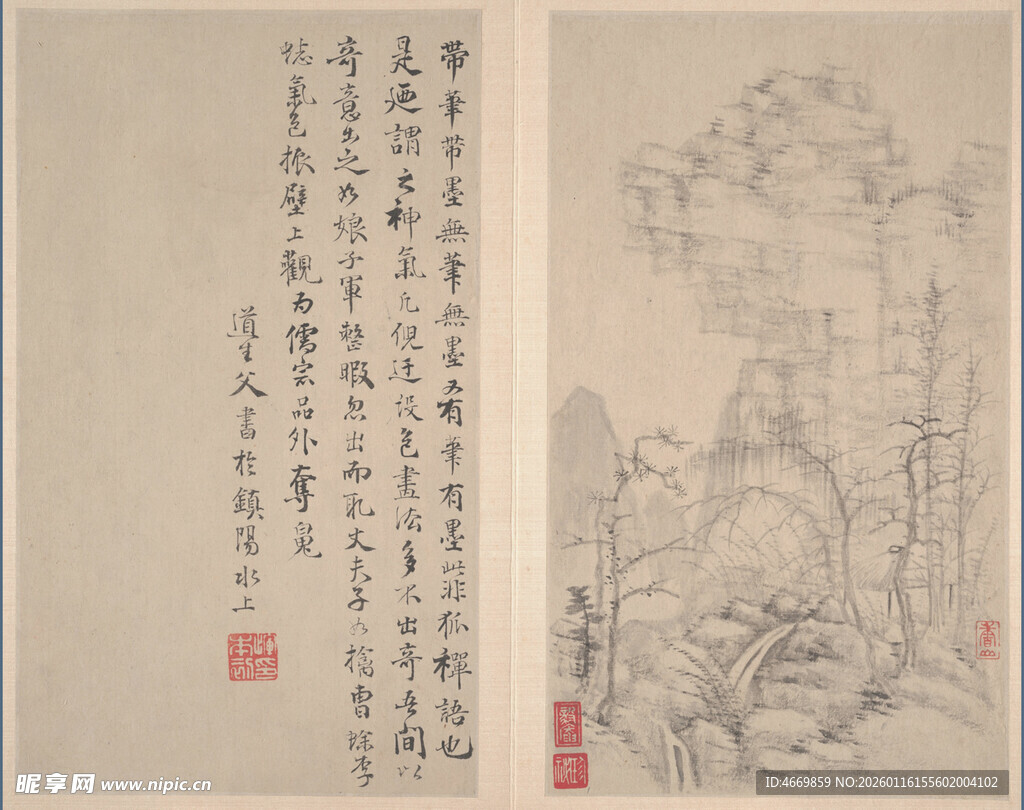 帶筆帶墨無筆無墨又有筆有墨此非狐禪語也
是迺謂之神氣凡倪迂設色畫法多不出奇吾間以
奇意出之如娘子軍整暇忽出而耴丈夫子如擒曹
氣色振壁上觀為儒宗品外奪
道生父書於鎮陽水上
昵享网 www.nipic.cn
ID:4669859 NO:20260116155602004102